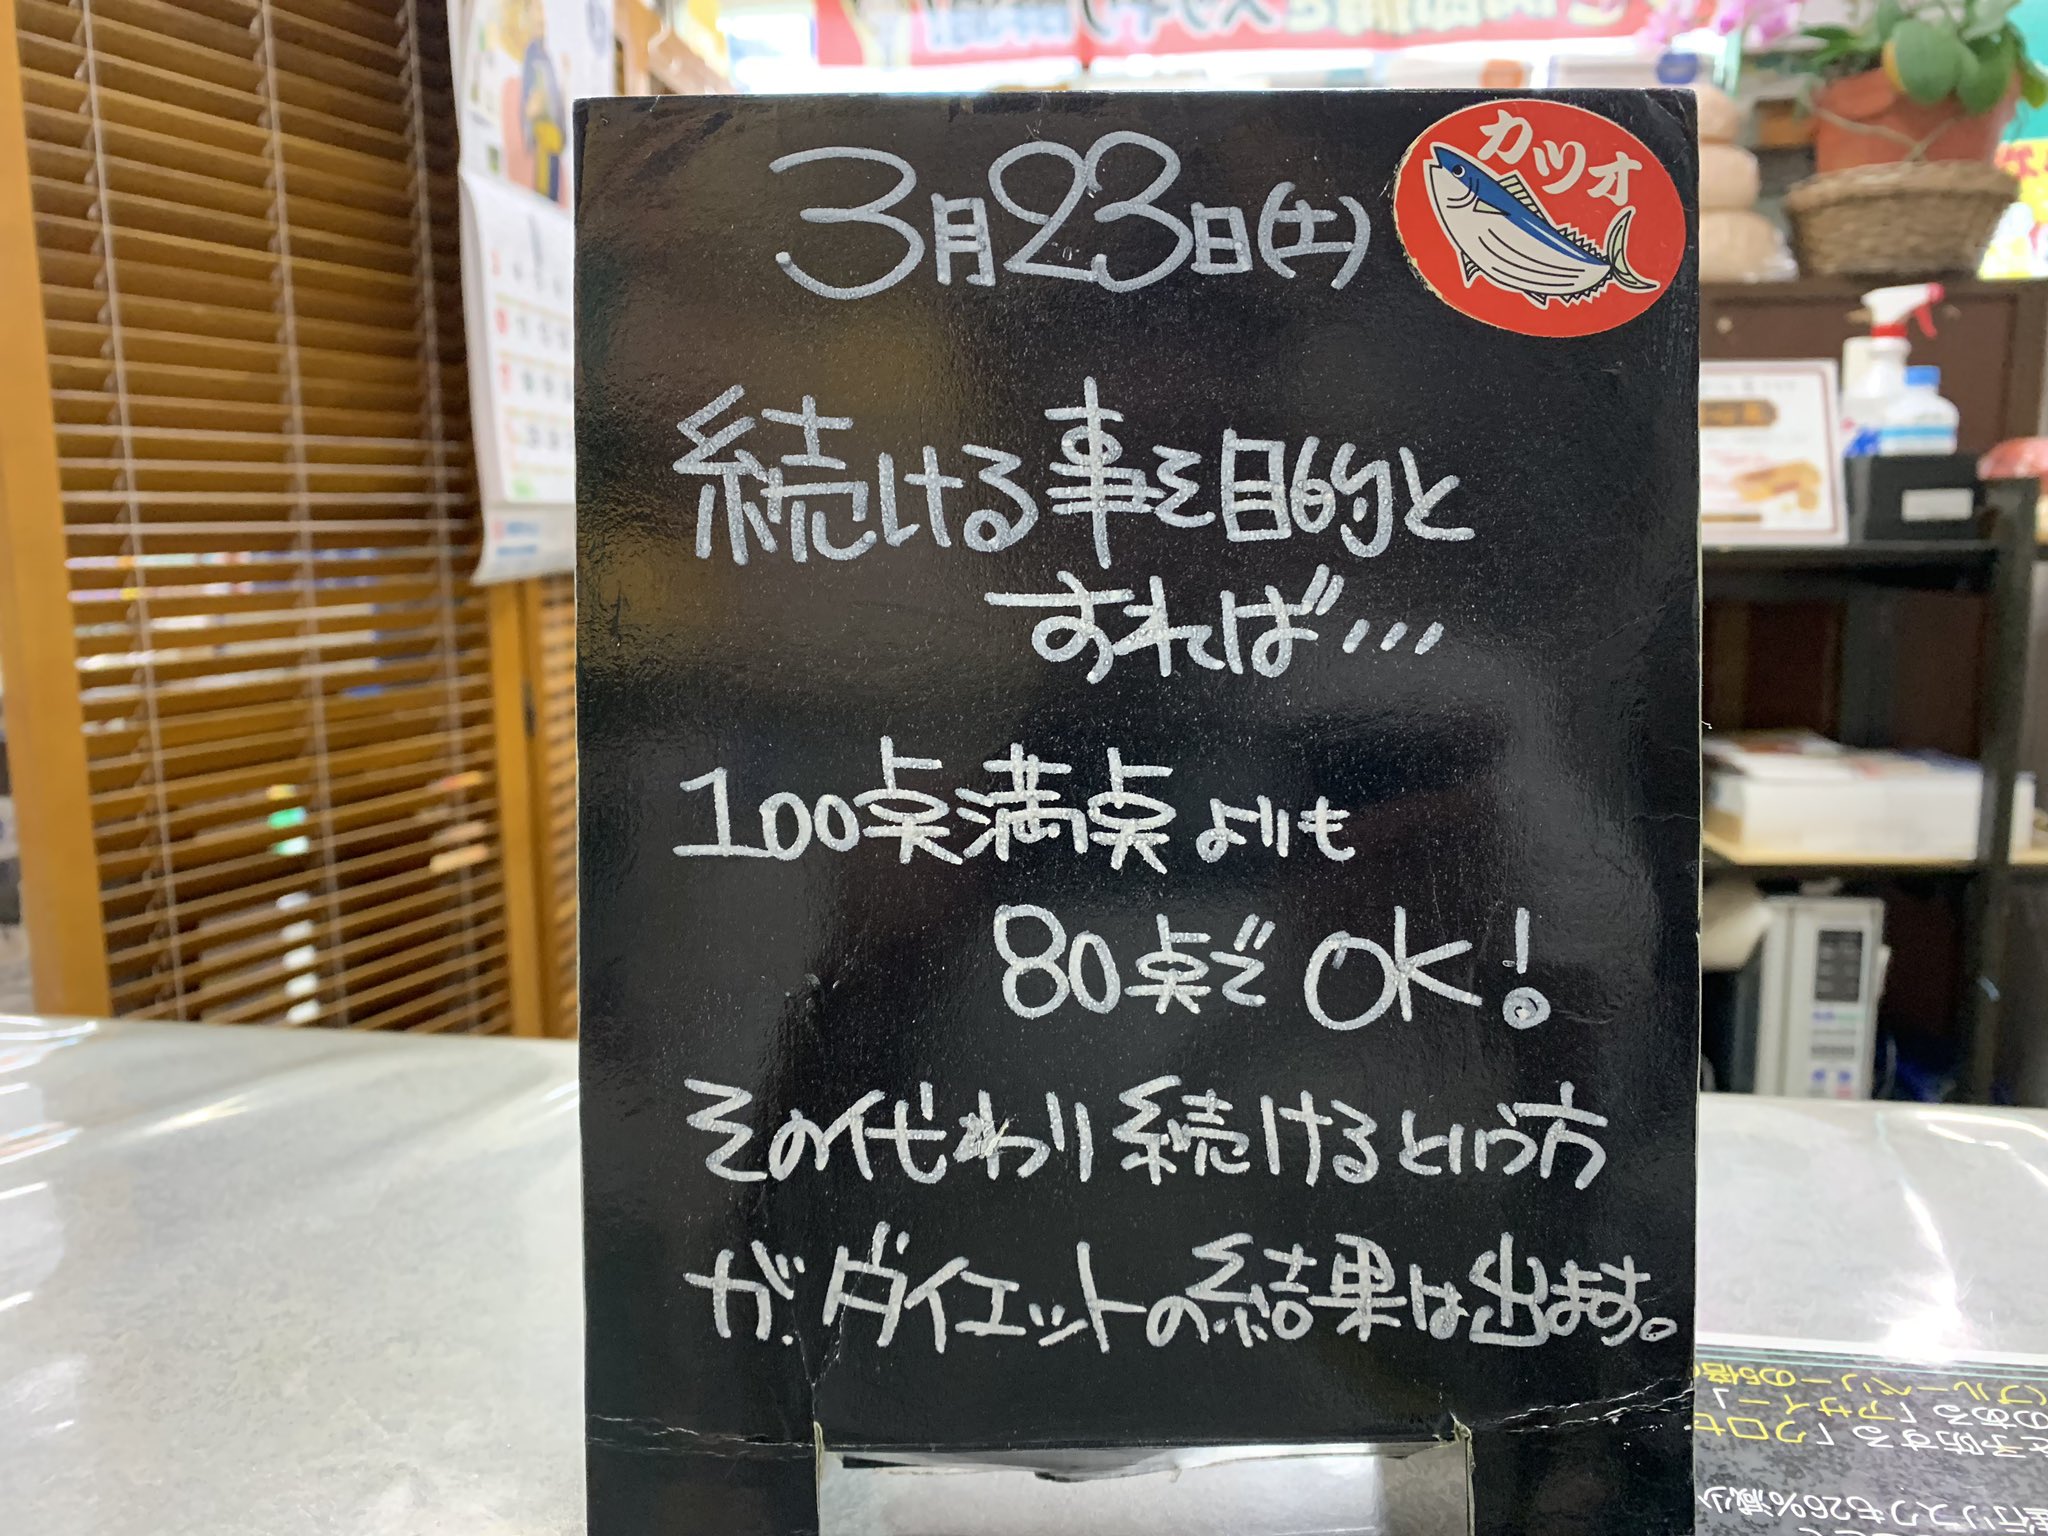 3月23日(土)
カツオ
続ける事を目的と
すれば…
100点満点よりも
80点で OK!
その代わり続けるという方
が、ダイエットの結果は出ます。